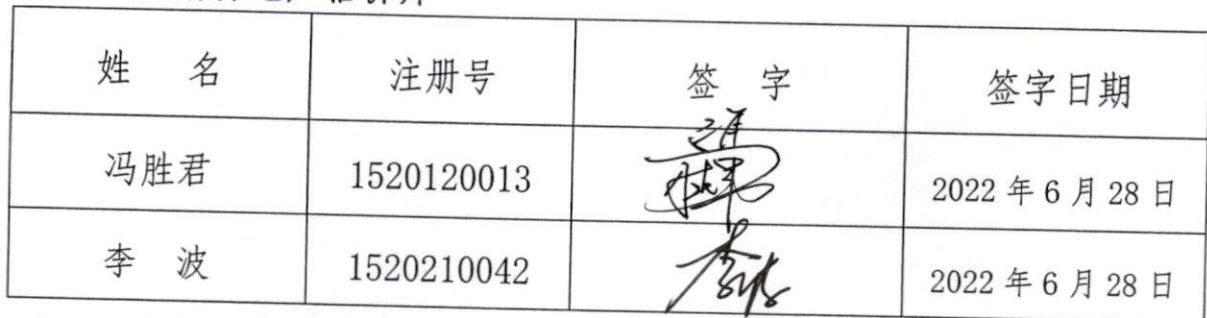 姓 名 注册号 签 字 签字日期
冯胜君 1520120013 2022年6月28日
李 波 1520210042 李波 2022年6月28日